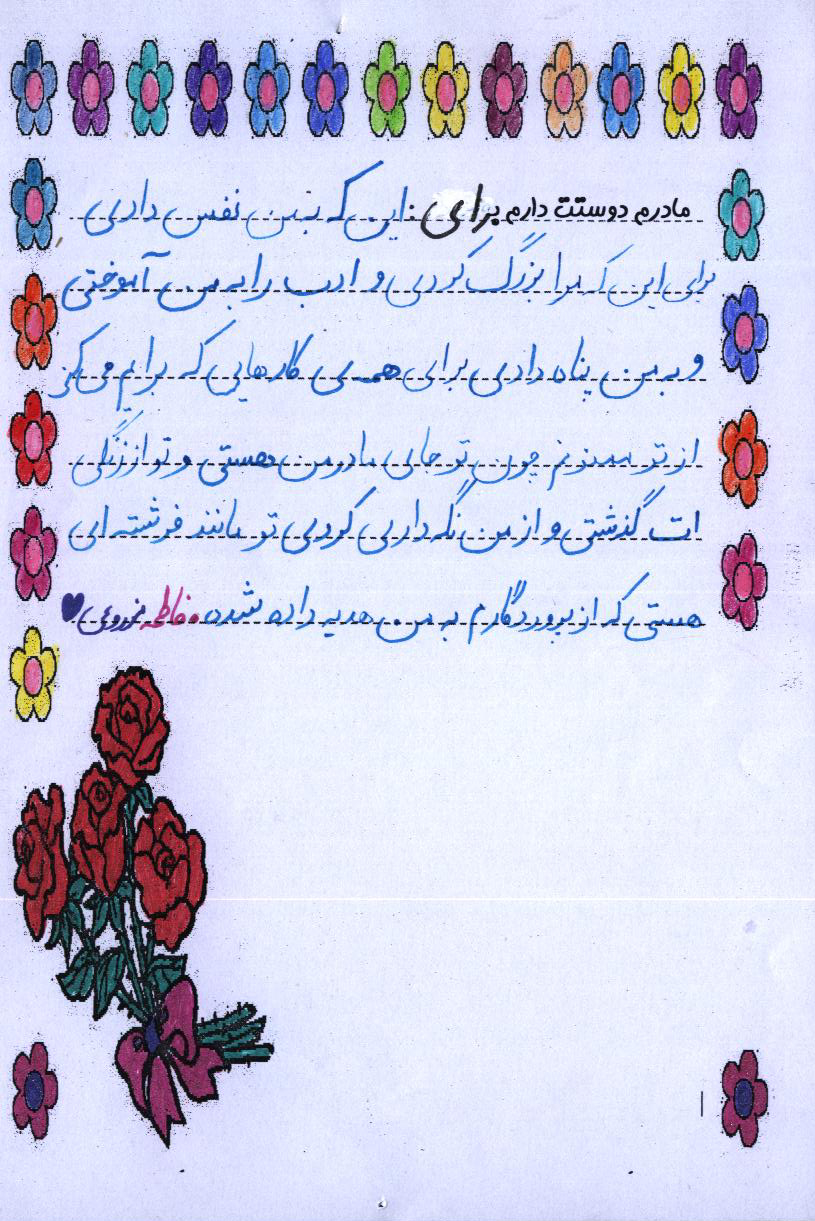 مادرم دوستت دارم برای : این که به من نفس دادی
برای این که مرا بزرگ کردی و ادب را به من آموختی
و به من پناه دادی برای همه ی کارهایی که برایم می کنی
از تو ممنونم چون تو جای مادر من هستی و تو از زندگی
ات گذشتی و از من نگه داری کردی تو مانند فرشته ای
هستی که از پروردگارم به من هدیه داده شده . فاطمه